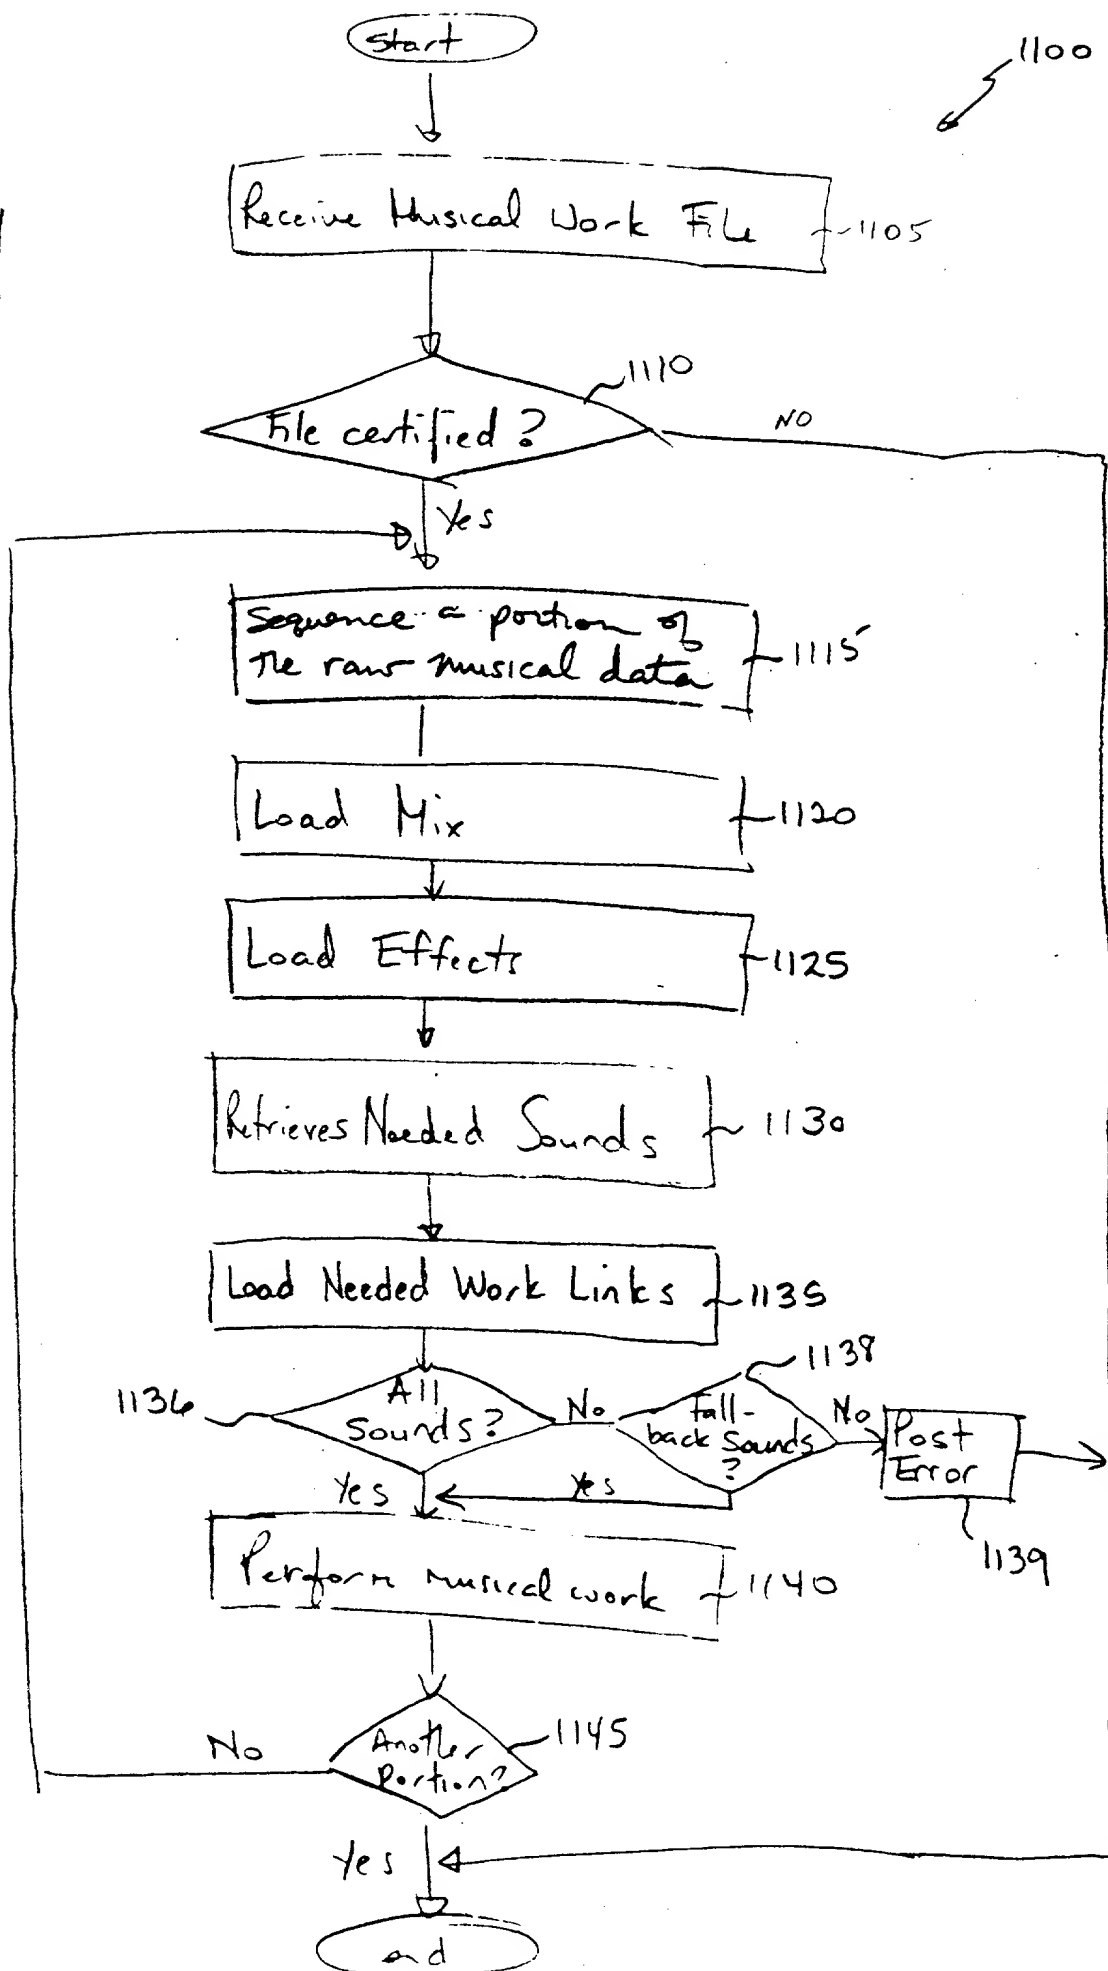 Start
1100
Receive Musical Work File
1105
1110
File certified?
NO
Yes
Sequence a portion of
the raw musical data
1115
Load Mix
1120
Load Effects
1125
Retrieves Needed Sounds
1130
Load Needed Work Links
1135
1138
1136
All
Sounds?
No
Fall-
back Sounds
?
No
Post
Error
Yes
Yes
1139
Perform musical work
1140
1145
Another
Portion?
No
Yes
end